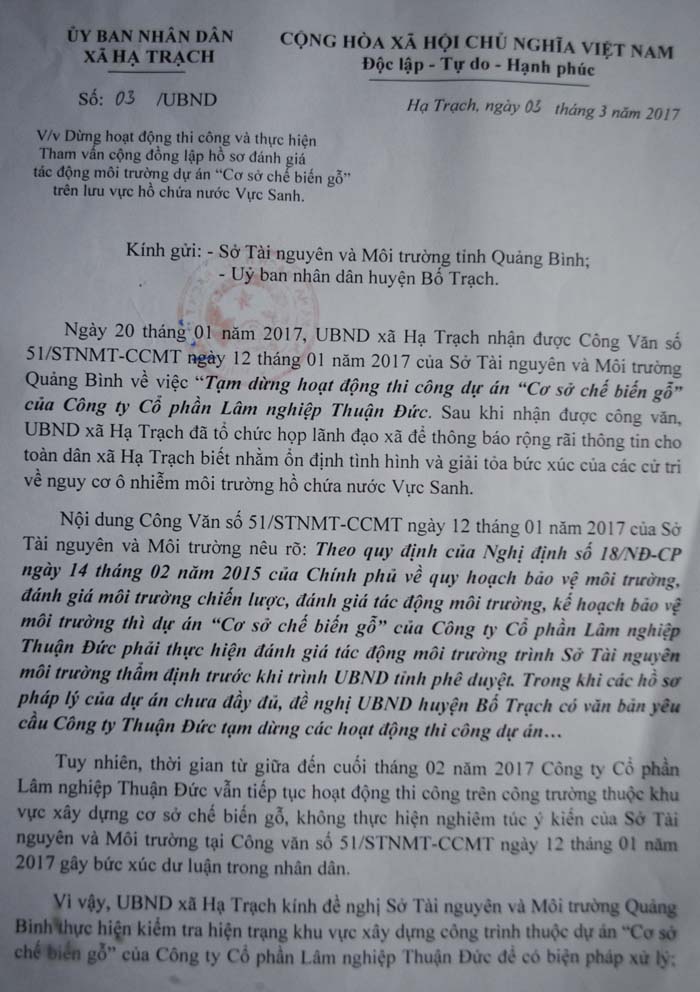 ỦY BAN NHÂN DÂN
XÃ HẠ TRẠCH
CỘNG HÒA XÃ HỘI CHỦ NGHĨA VIỆT NAM
Độc lập - Tự do - Hạnh phúc
Số: 03 /UBND
Hạ Trạch, ngày 03 tháng 3 năm 2017
V/v Dừng hoạt động thi công và thực hiện
Tham vấn cộng đồng lập hồ sơ đánh giá
tác động môi trường dự án “Cơ sở chế biến gỗ”
trên lưu vực hồ chứa nước Vực Sanh.
Kính gửi: - Sở Tài nguyên và Môi trường tỉnh Quảng Bình;
- Uỷ ban nhân dân huyện Bố Trạch.
Ngày 20 tháng 01 năm 2017, UBND xã Hạ Trạch nhận được Công Văn số
51/STNMT-CCMT ngày 12 tháng 01 năm 2017 của Sở Tài nguyên và Môi trường
Quảng Bình về việc “Tạm dừng hoạt động thi công dự án “Cơ sở chế biến gỗ”
của Công ty Cổ phần Lâm nghiệp Thuận Đức. Sau khi nhận được công văn,
UBND xã Hạ Trạch đã tổ chức họp lãnh đạo xã để thông báo rộng rãi thông tin cho
toàn dân xã Hạ Trạch biết nhằm ổn định tình hình và giải tỏa bức xúc của các cử tri
về nguy cơ ô nhiễm môi trường hồ chứa nước Vực Sanh.
Nội dung Công Văn số 51/STNMT-CCMT ngày 12 tháng 01 năm 2017 của Sở
Tài nguyên và Môi trường nêu rõ: Theo quy định của Nghị định số 18/NĐ-CP
ngày 14 tháng 02 năm 2015 của Chính phủ về quy hoạch bảo vệ môi trường,
đánh giá môi trường chiến lược, đánh giá tác động môi trường, kế hoạch bảo vệ
môi trường thì dự án “Cơ sở chế biến gỗ” của Công ty Cổ phần Lâm nghiệp
Thuận Đức phải thực hiện đánh giá tác động môi trường trình Sở Tài nguyên
môi trường thẩm định trước khi trình UBND tỉnh phê duyệt. Trong khi các hồ sơ
pháp lý của dự án chưa đầy đủ, đề nghị UBND huyện Bố Trạch có văn bản yêu
cầu Công ty Thuận Đức tạm dừng các hoạt động thi công dự án…
Tuy nhiên, thời gian từ giữa đến cuối tháng 02 năm 2017 Công ty Cổ phần
Lâm nghiệp Thuận Đức vẫn tiếp tục hoạt động thi công trên công trường thuộc khu
vực xây dựng cơ sở chế biến gỗ, không thực hiện nghiêm túc ý kiến của Sở Tài
nguyên và Môi trường tại Công văn số 51/STNMT-CCMT ngày 12 tháng 01 năm
2017 gây bức xúc dư luận trong nhân dân.
Vì vậy, UBND xã Hạ Trạch kính đề nghị Sở Tài nguyên và Môi trường Quảng
Bình thực hiện kiểm tra hiện trạng khu vực xây dựng công trình thuộc dự án “Cơ sở
chế biến gỗ” của Công ty Cổ phần Lâm nghiệp Thuận Đức để có biện pháp xử lý;